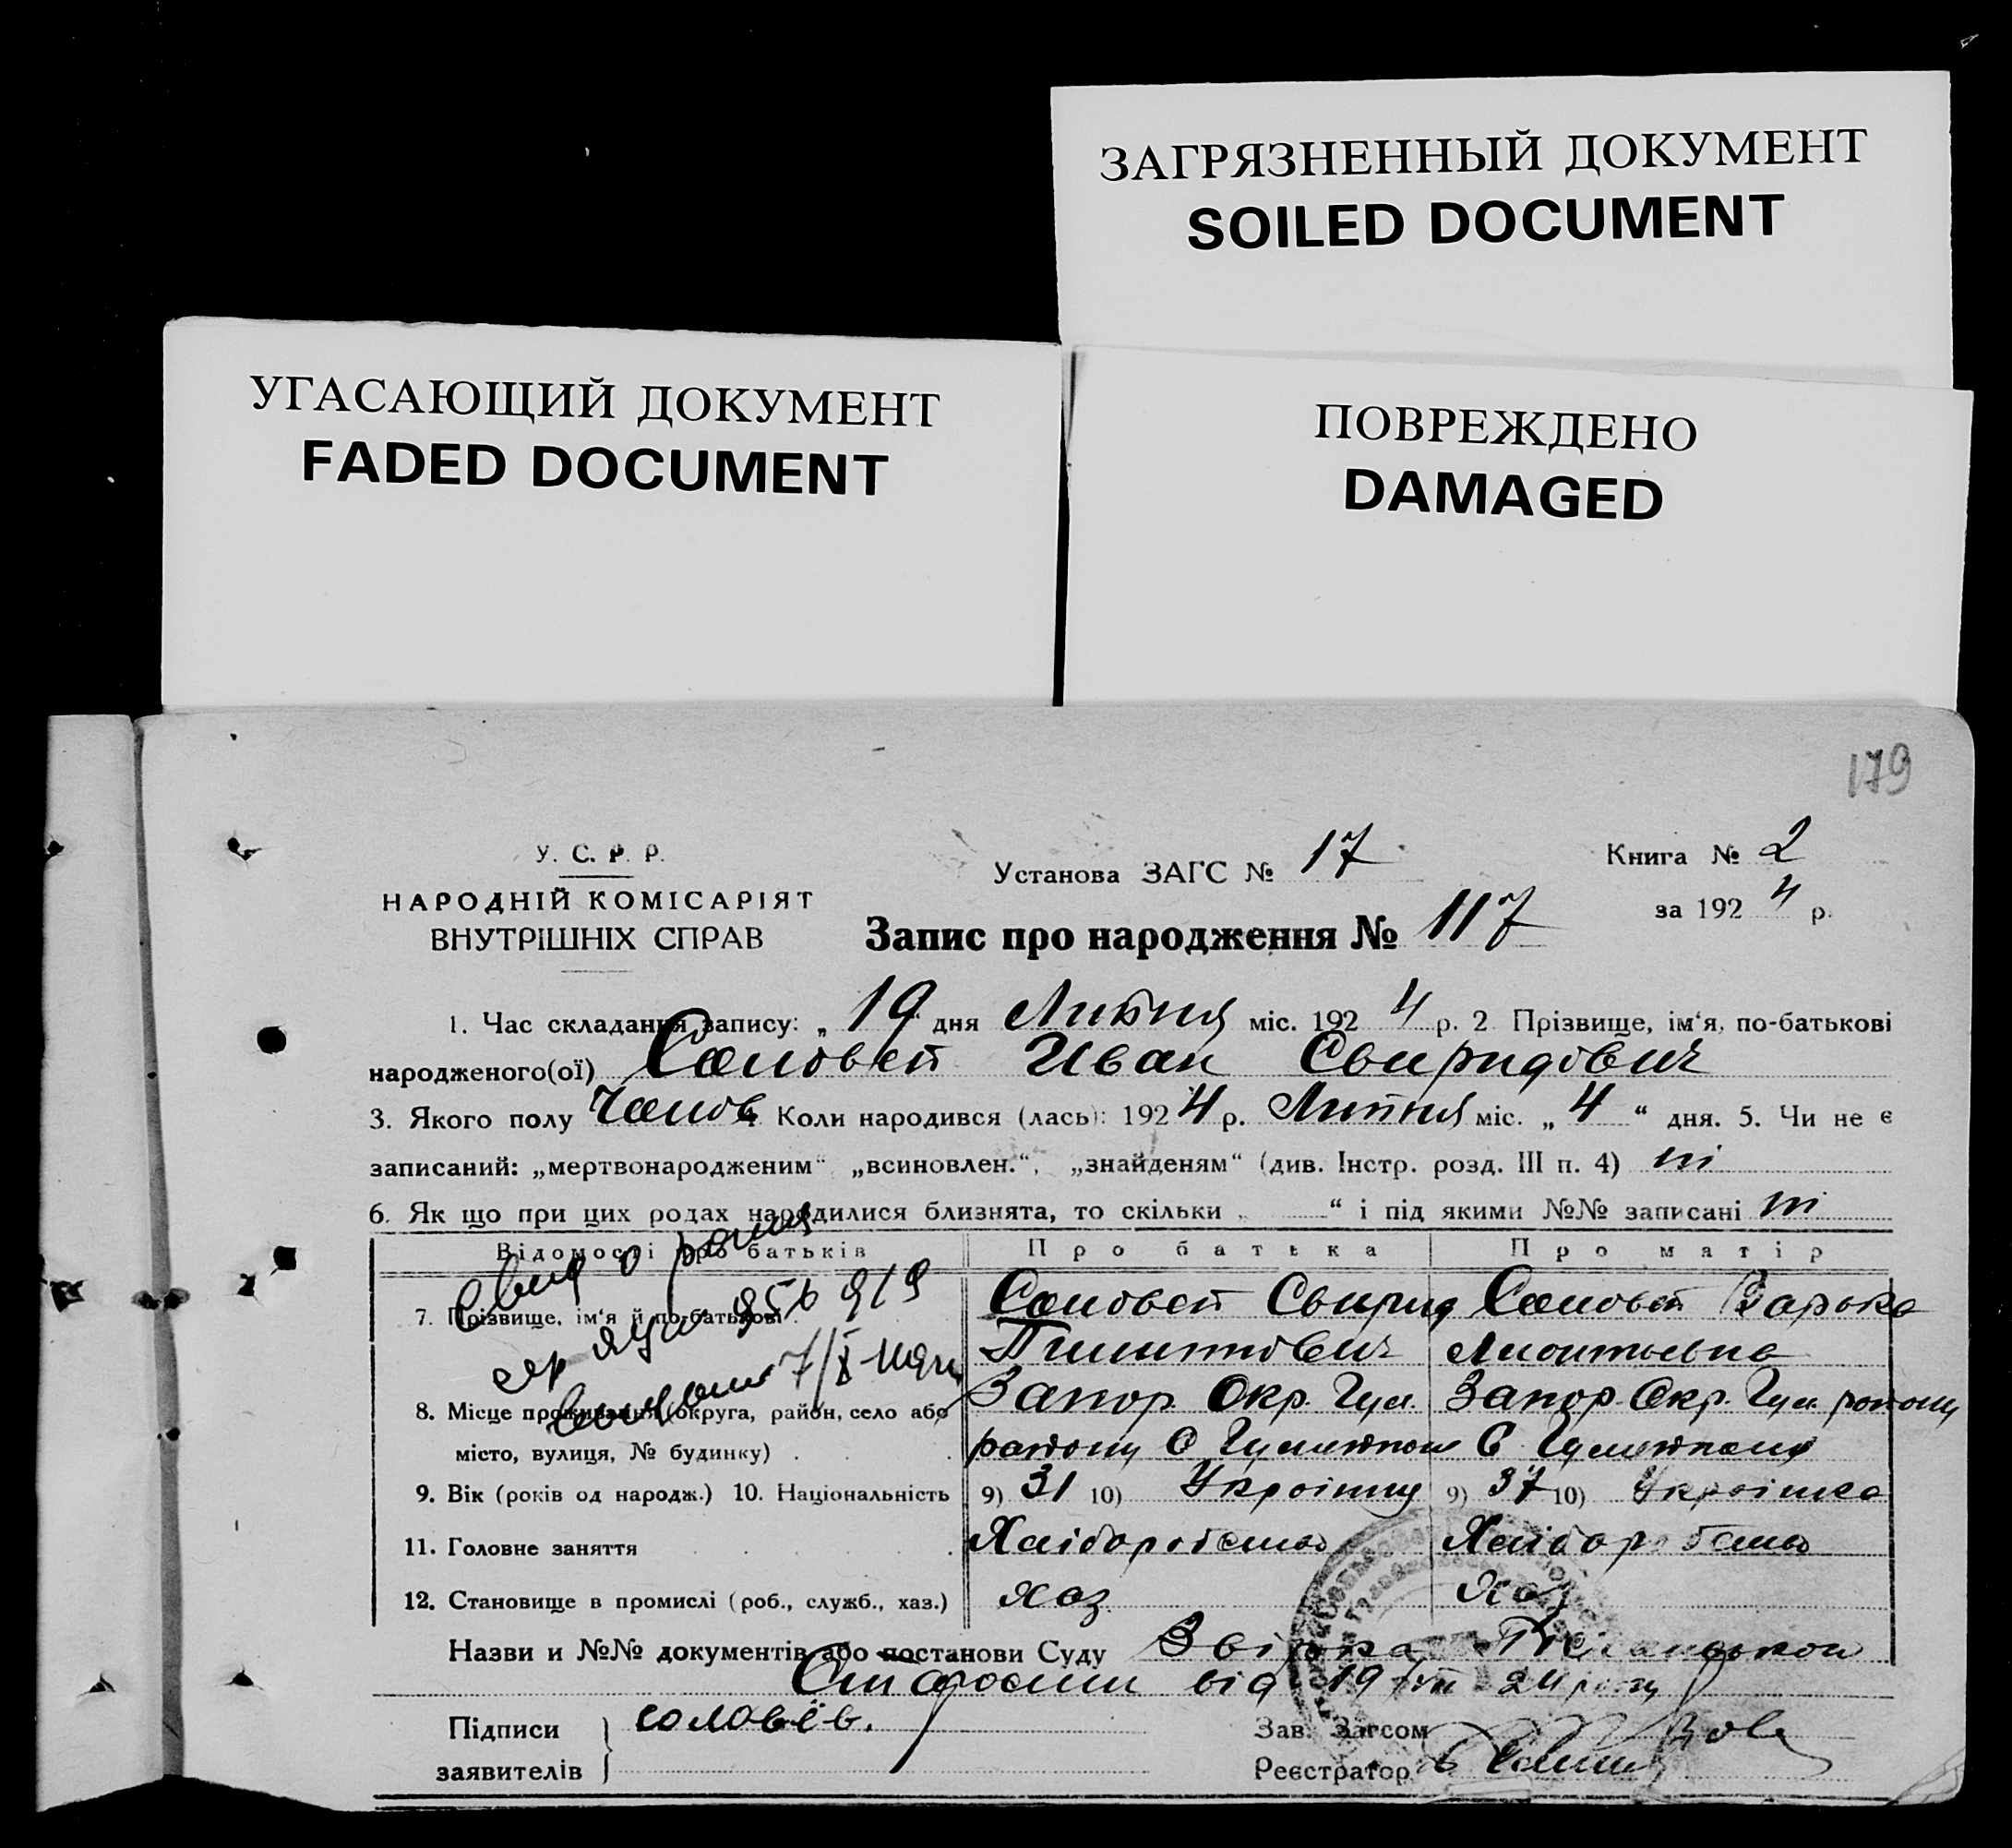 ЗАГРЯЗНЕННЫЙ ДОКУМЕНТ
SOILED DOCUMENT
УГАСАЮЩИЙ ДОКУМЕНТ
FADED DOCUMENT
ПОВРЕЖДЕНО
DAMAGED
179
У. С. Р. Р.
НАРОДНІЙ КОМІСАРІЯТ
ВНУТРІШНІХ СПРАВ
Установа ЗАГС № 17
Книга № 2
за 1924 р.
Запис про народження № 117
1. Час складання запису: „ 19 дня Липня міс. 1924 р. 2 Прізвище, ім‘я, по-батькові
народженого(ої) Соловей Иван Свиридович
3. Якого полу Чолов 4. Коли народився (лась): 1924 р. Липня міс. „ 4 “ дня. 5. Чи не є
записаний: „мертвонародженим“ „всиновлен.“, „знайденям“ (див. Інстр. розд. III п. 4) ні
6. Як що при цих родах народилися близнята, то скільки „ “ і під якими №№ записані ні
Відомості про батьків Про батька Про матір
7. Прізвище, ім‘я й по-батькові Соловей Свирид Соловей
8. Місце проживання (округа, район, село або Запор Окр. Гул. Запор. Окр. Гул району
місто, вулиця, № будинку) району С С
9. Вік (років од народж.) 10. Національність 9) 31 10) Украінец 9) 37 10) Украінка
11. Головне заняття Хліборобство Хліборобство
12. Становище в промислі (роб., служб., хаз.) хаз. хаз
Назви и №№ документів або постанови Суду
від 19/VII 24 року
Підписи соловьёв.
заявителів
Зав. Загсом
Реєстратор